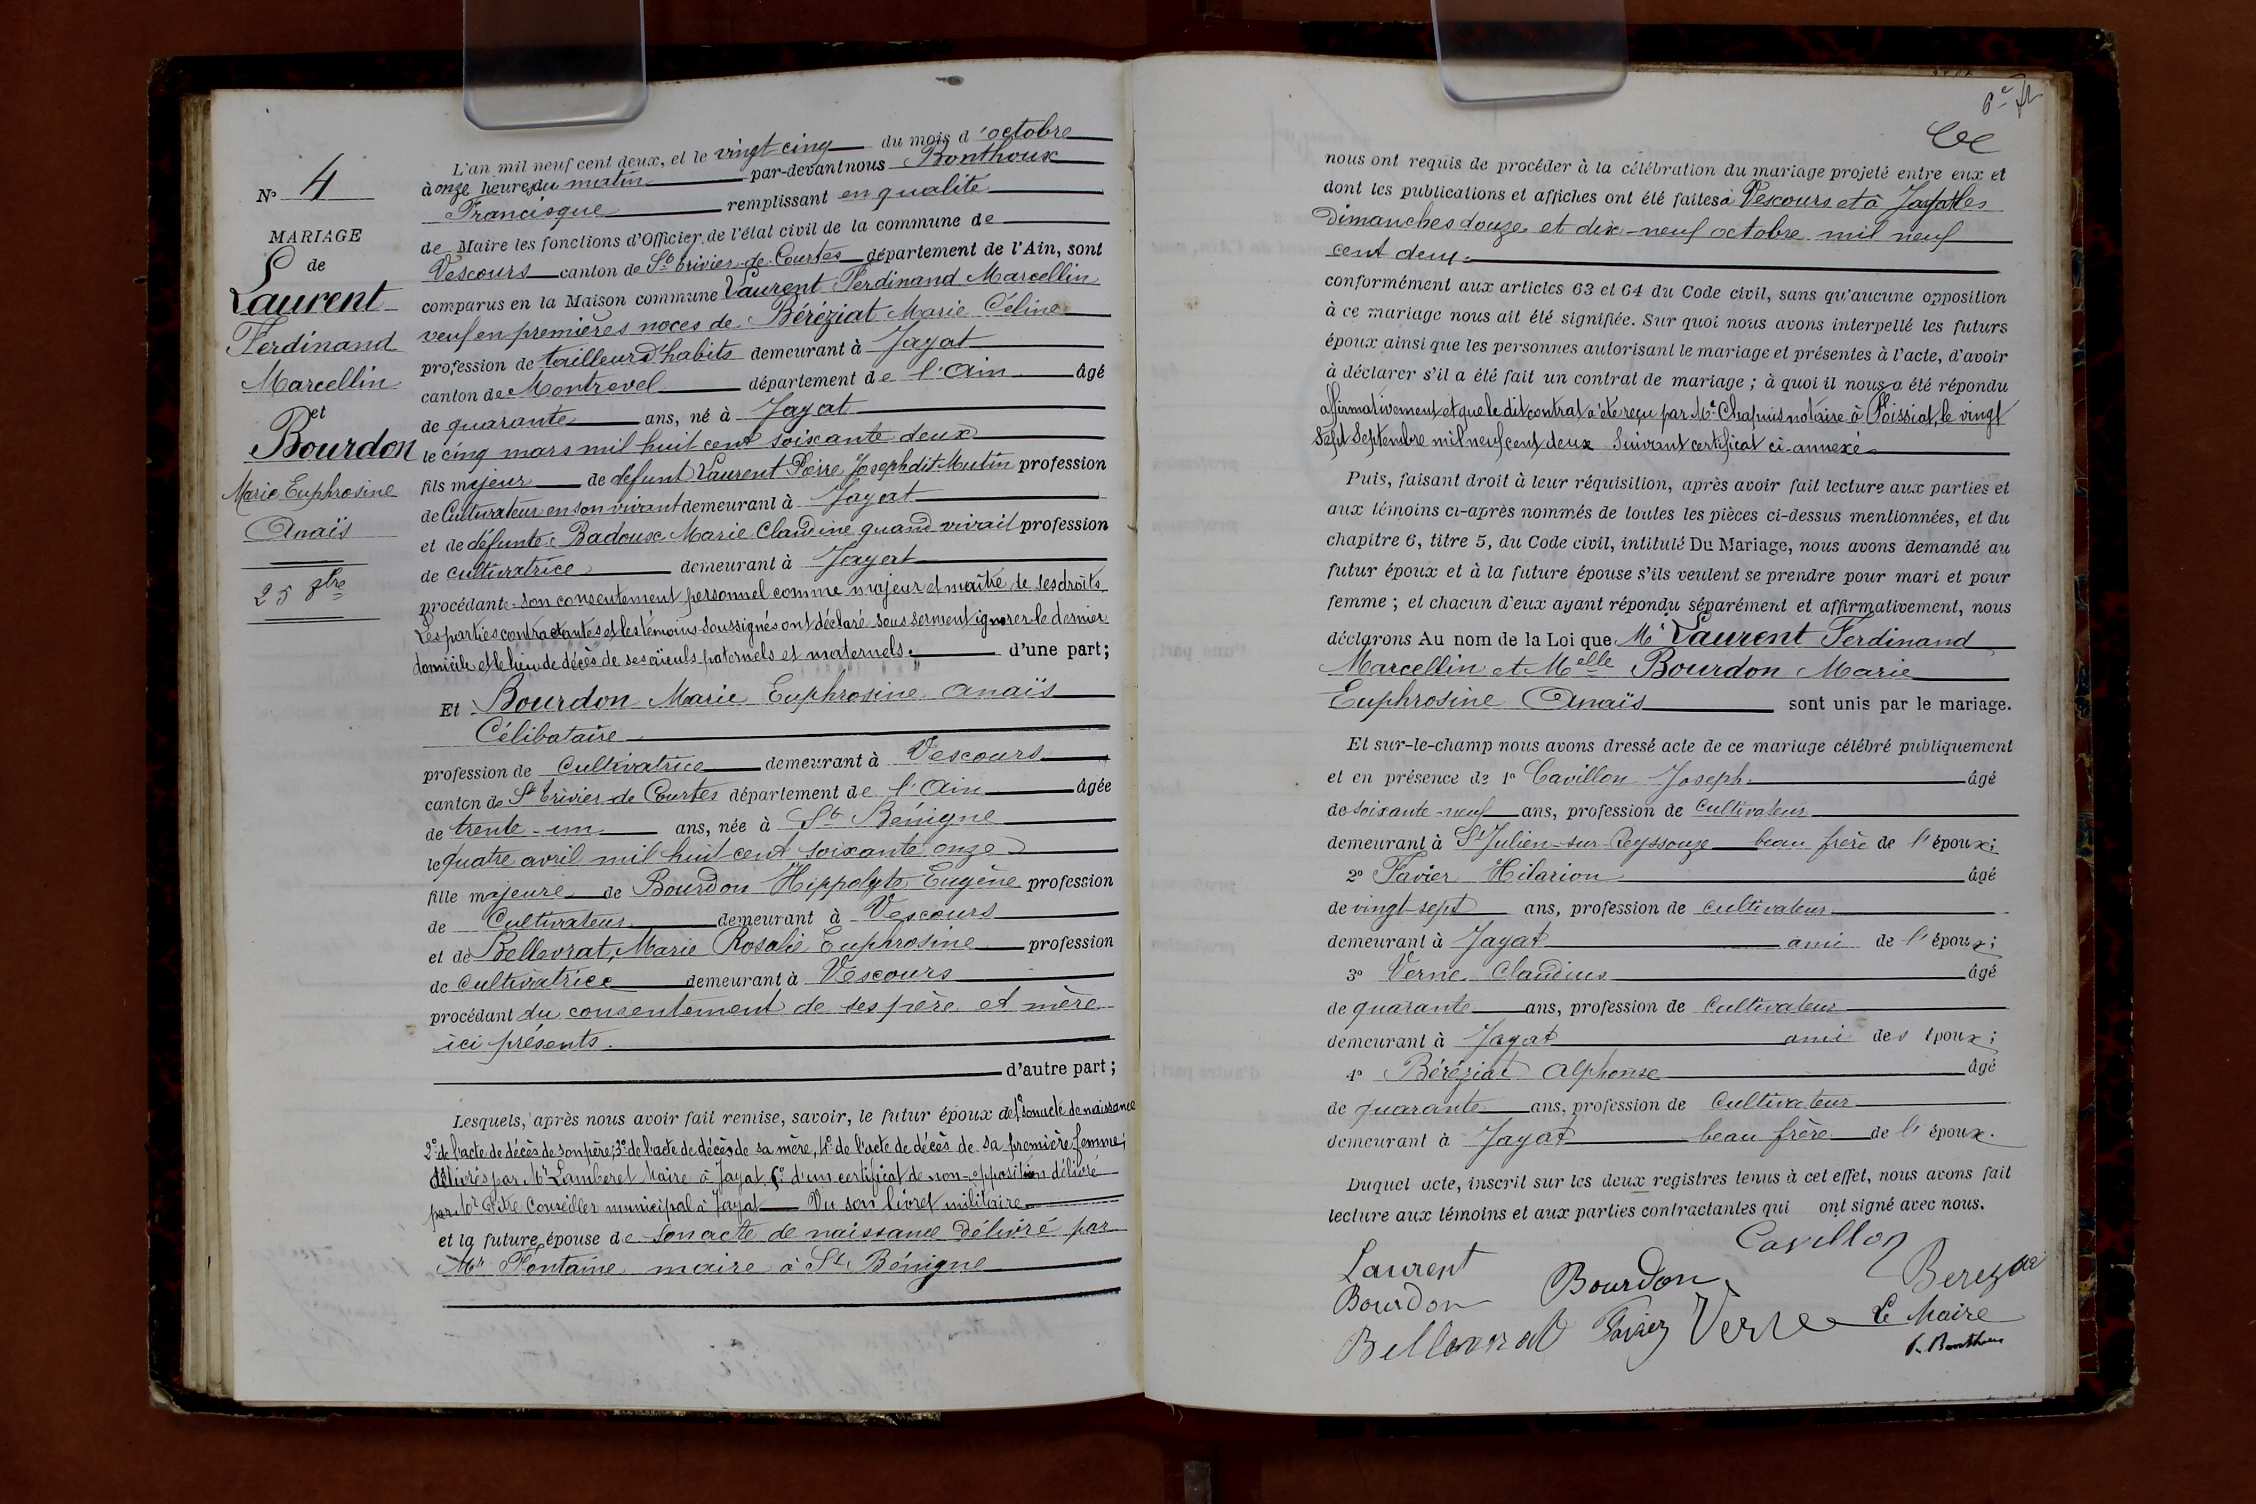 N° 4
MARIAGE
de
Laurent
Ferdinand
Marcellin
et
Bourdon
Marie Euphrosine
Anaïs
25 8bre
L'an mil neuf cent deux, et le vingt cinq du mois d'octobre
à onze heures du matin par-devant nous Bonthoux
Francisque remplissant en qualité
de Maire les fonctions d'Officier de l'état civil de la commune de
Vescours canton de St trivier de Courtes département de l'Ain, sont
comparus en la Maison commune Laurent Ferdinand Marcellin
veuf en premières noces de Béréziat Marie Céline
profession de tailleur d'habits demeurant à Jayat
canton de Montrevel département de l'Ain âgé
de quarante ans, né à Jayat
le cinq mars mil huit cent soixante deux
fils majeur de défunt Laurent Pierre Joseph dit Mutin profession
de Cultivateur en son vivant demeurant à Jayat
et de défunte Badoux Marie Claudine quand vivait profession
de cultivatrice demeurant à Jayat
procédant son consentement personnel comme majeur et maître de ses droits
Les parties contractantes et les témoins soussignés ont déclaré sous serment ignorer le dernier
domicile et le lieu de décès de ses aïeuls paternels et maternels. d'une part;
Et Bourdon Marie Euphrosine Anaïs
Célibataire
profession de Cultivatrice demeurant à Vescours
canton de St trivier de Courtes département de l'Ain âgée
de trente-un ans, née à St Bénigne
le quatre avril mil huit cent soixante onze
fille majeure de Bourdon Hippolyte Eugène profession
de Cultivateur demeurant à Vescours
et de Bellevrat, Marie Rosalie Euphrosine profession
de Cultivatrice demeurant à Vescours
procédant du consentement de ses père et mère
ici présents.
d'autre part;
Lesquels, après nous avoir fait remise, savoir, le futur époux de 1° son acte de naissance
2° de l'acte de décès de son père; 3° de l'acte de décès de sa mère, 4° de l'acte de décès de sa première femme;
délivrés par Mr Lamberet Maire à Jayat, d'un certificat de non-opposition délivré
par Mr Conseiller municipal à Jayat Vu son livret militaire
et la future épouse de son acte de naissance délivré par
Mr Fontaine maire à St Bénigne
6e
nous ont requis de procéder à la célébration du mariage projeté entre eux et
dont les publications et affiches ont été faites à Vescours et à Jayat les
Dimanches douze et dix-neuf octobre mil neuf
cent deux.
conformément aux articles 63 et 64 du Code civil, sans qu'aucune opposition
à ce mariage nous ait été signifiée. Sur quoi nous avons interpellé les futurs
époux ainsi que les personnes autorisant le mariage et présentes à l'acte, d'avoir
à déclarer s'il a été fait un contrat de mariage; à quoi il nous a été répondu
affirmativement et que le dit contrat a été reçu par Me Chapuis notaire à Foissiat, le vingt
Sept Septembre mil neuf cent deux Suivant certificat ci-annexé
Puis, faisant droit à leur réquisition, après avoir fait lecture aux parties et
aux témoins ci-après nommés de toutes les pièces ci-dessus mentionnées, et du
chapitre 6, titre 5, du Code civil, intitulé Du Mariage, nous avons demandé au
futur époux et à la future épouse s'ils veulent se prendre pour mari et pour
femme; et chacun d'eux ayant répondu séparément et affirmativement, nous
déclarons Au nom de la Loi que Mr Laurent Ferdinand
Marcellin et Melle Bourdon Marie
Euphrosine Anaïs sont unis par le mariage.
Et sur-le-champ nous avons dressé acte de ce mariage célébré publiquement
et en présence de 1° Cavillon Joseph âgé
de soixante-neuf ans, profession de cultivateur
demeurant à St Julien-sur-Reyssouze beau frère de l'époux;
2° Favier Hilarion âgé
de vingt-sept ans, profession de cultivateur
demeurant à Jayat ami de l'époux;
3° Verne Claudius âgé
de quarante ans, profession de Cultivateur
demeurant à Jayat ami des époux;
4° Béréziat Alphonse âgé
de quarante ans, profession de Cultivateur
demeurant à Jayat beau frère de l'époux.
Duquel acte, inscrit sur les deux registres tenus à cet effet, nous avons fait
lecture aux témoins et aux parties contractantes qui ont signé avec nous.
Cavillon
Laurent Bourdon Bereziat
Bourdon Le Maire
Bellevrat Favier Verne
F. Bonthoux